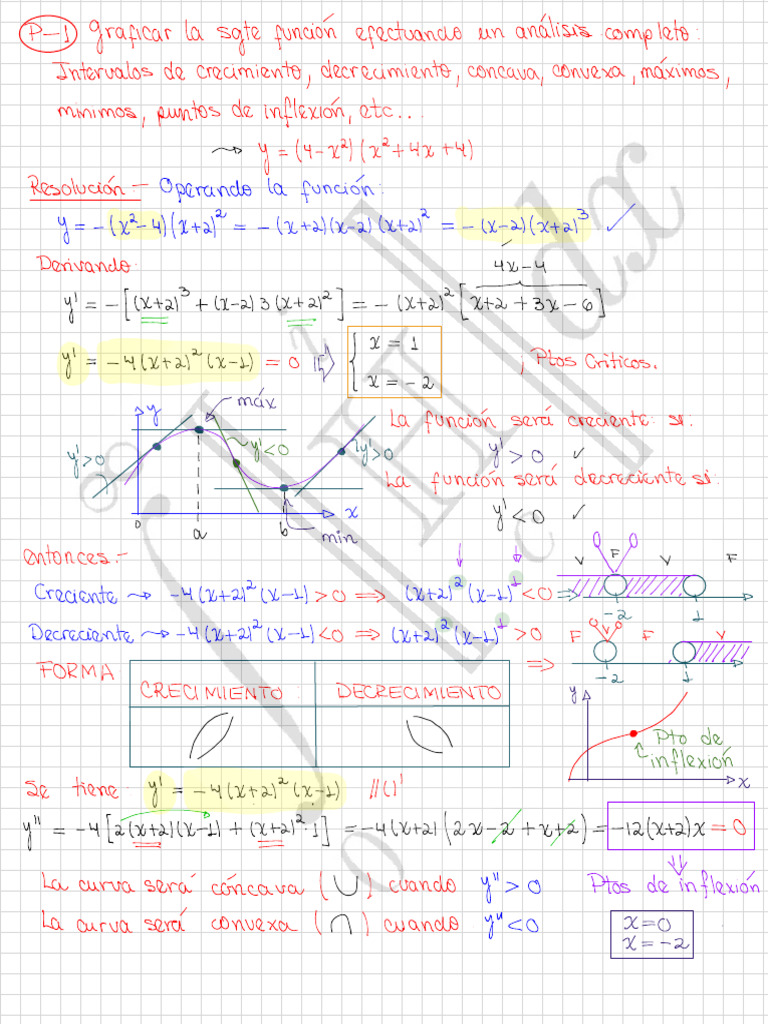 P-1 Graficar la sgte función efectuando un análisis completo:
Intervalos de crecimiento, decrecimiento, concava, convexa, máximos,
mínimos, puntos de inflexión, etc...
→ y = (4-x²)(x²+4x+4)
Resolución:- Operando la función:
y = -(x²-4)(x+2)² = -(x+2)(x-2)(x+2)² = -(x-2)(x+2)³ ✓
Derivando:
4x-4
y' = -[(x+2)³ + (x-2)3(x+2)²] = -(x+2)²[x+2+3x-6]
y' = -4(x+2)²(x-1) = 0 ⇒ { x = 1
x = -2 , Ptos Críticos.
y máx
La función será creciente: si:
y'>0 y'<0 y'>0
y' > 0 ✓
La función será decreciente si:
y' < 0 ✓
0 a b x min
entonces:-
V F V F
Creciente → -4(x+2)²(x-1) > 0 ⇒ (x+2)²(x-1)¹ < 0 ⇒
-2 1
Decreciente → -4(x+2)²(x-1) < 0 ⇒ (x+2)²(x-1)¹ > 0
F F V
⇒ -2 1
FORMA
CRECIMIENTO: DECRECIMIENTO
y
Pto de
inflexión
x
Se tiene: y' = -4(x+2)²(x-1) //()'
y'' = -4[2(x+2)(x-1) + (x+2)²·1] = -4(x+2)(2x-2+x+2) = -12(x+2)x = 0
La curva será cóncava (∪) cuando y'' > 0
Ptos de inflexión
La curva será convexa (∩) cuando y'' < 0
x = 0
x = -2